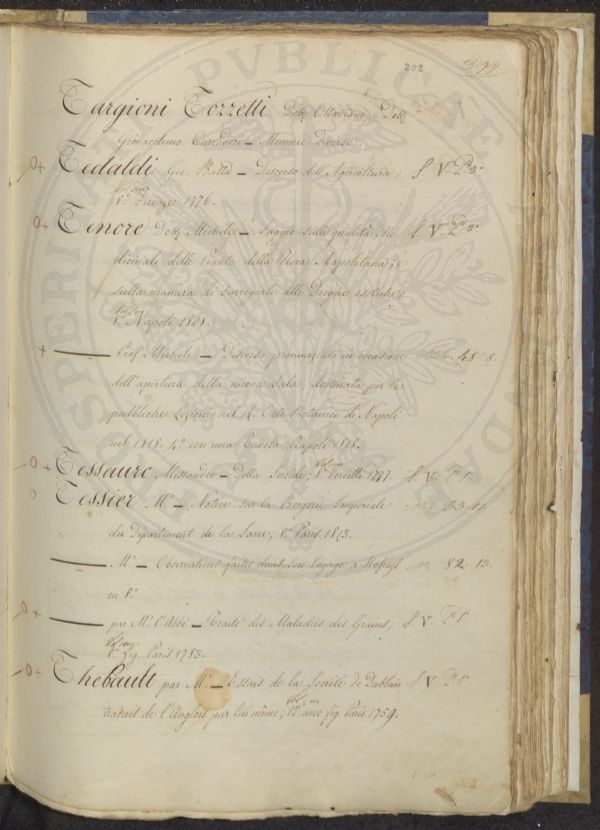 PROSPERITATI PUBLICAE AUGENDAE
202
399
Targioni Tozzetti Dott. Ottaviano, e Dott.
Giovacchino Carradori – Memorie Diverse.
Tedaldi Gio. Batta – Discorso dell'Agricoltura; S. V. P. 3.
8.° Firenze 1776.
Tenore Dott. Michele – Saggio sulle qualità Me- S. V. P. 3.
dicinali delle Piante della Flora Napolitana; e
sulla maniera di surrogarle alle Droghe esotiche;
8.° Napoli 1808.
Prof. Michele – Discorso pronunziato in occasione 48. 8.
dell'apertura della nuova Sala, destinata per le
pubbliche Lezioni nel R. Orto Botanico di Napoli
nel 1818. 4.° con una Tavola, Napoli 1818.
Tessauro Alessandro – Della Sereide; 8.° Vercelli 1777. S. V. P. 1.
Tessier M.r – Notice sur la Bergerie Imperiale 53. 11.
du Département de la Sarre; 8.° Paris 1813.
M.r – Observations faites dans son Voyage a Hofwyl 82. 13.
in 8.°
par M.r l'Abbé – Traité des Maladies des Grains; S. V. P. 1.
8.° fig. Paris 1783.
Thebault par M.r – Essais de la Societé de Dublin S. V. P. 1.
traduit de l'Anglois par lui même; 12.° avec fig. Paris 1759.